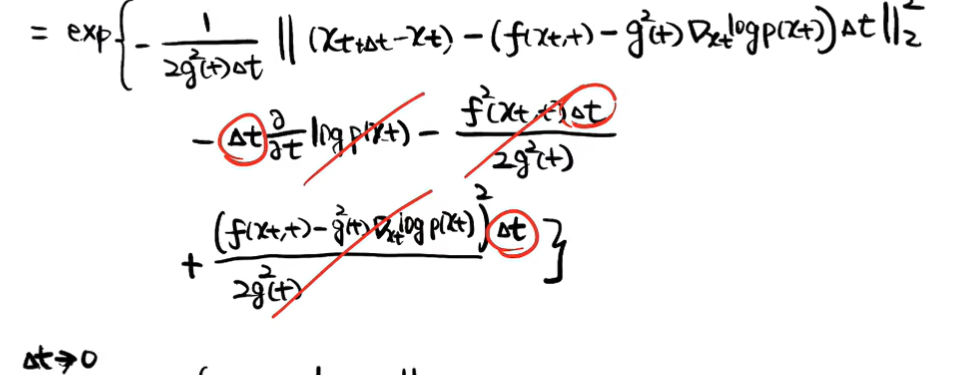 = exp{ - 1/(2g²(t)Δt) || (x_{t+Δt} - x_t) - (f(x_t,t) - g²(t) ∇_{x_t} log p(x_t)) Δt ||₂²
- Δt ∂/∂t log p(x_t) - f²(x_t,t)Δt / 2g²(t)
+ (f(x_t,t) - g²(t) ∇_{x_t} log p(x_t))² Δt / 2g²(t) }
Δt→0